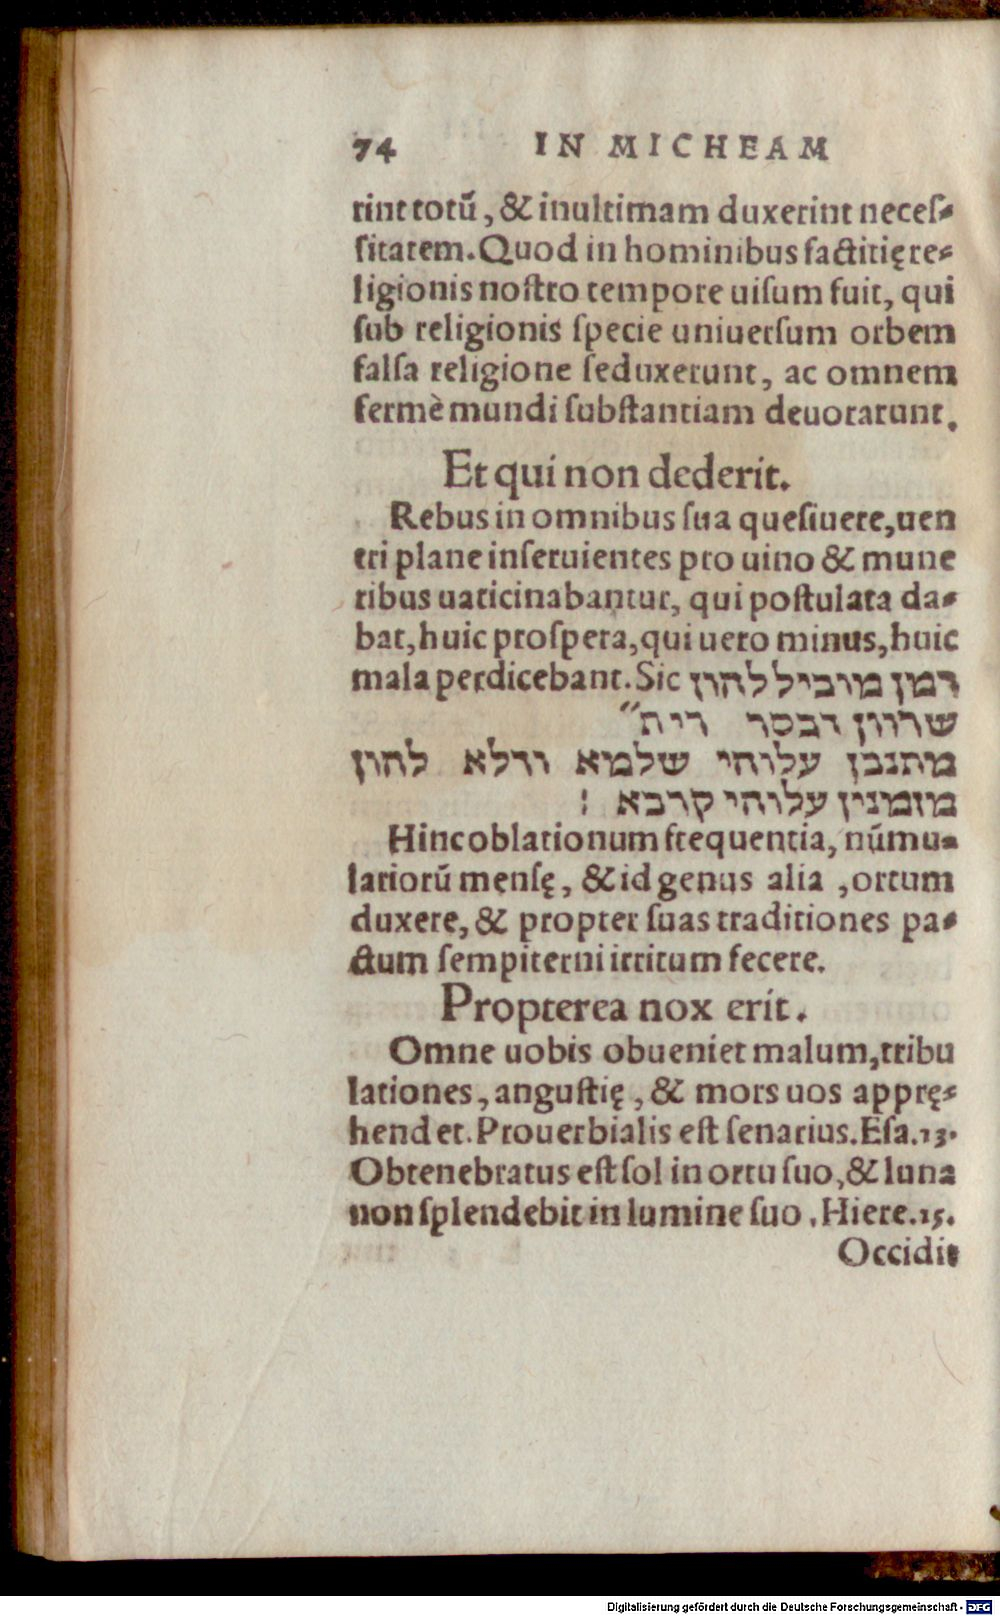 74 IN MICHEAM
rint totū, & in ultimam duxerint neceſ-
ſitatem. Quod in hominibus factitię re-
ligionis noſtro tempore uiſum fuit, qui
ſub religionis ſpecie uniuerſum orbem
falſa religione ſeduxerunt, ac omnem
fermè mundi ſubſtantiam deuorarunt.
Et qui non dederit.
Rebus in omnibus ſua queſiuere, uen
tri plane inſeruientes pro uino & mune
ribus uaticinabantur, qui poſtulata da-
bat, huic proſpera, qui uero minus, huic
mala perdicebant. Sic דמן מוביל להון
שרוון דבסר רית״
מתנבן עלוהי שלמא ודלא להון
מזמנין עלוהי קרבא :
Hinc oblationum frequentia, nūmu-
lariorū menſę, & id genus alia, ortum
duxere, & propter ſuas traditiones pa-
ctum ſempiterni irritum fecere.
Propterea nox erit.
Omne uobis obueniet malum, tribu
lationes, anguſtię, & mors uos apprę-
hendet. Prouerbialis eſt ſenarius. Eſa. 13.
Obtenebratus eſt ſol in ortu ſuo, & luna
non ſplendebit in lumine ſuo. Hiere. 15.
Occidit
Digitalisierung gefördert durch die Deutsche Forschungsgemeinschaft - DFG